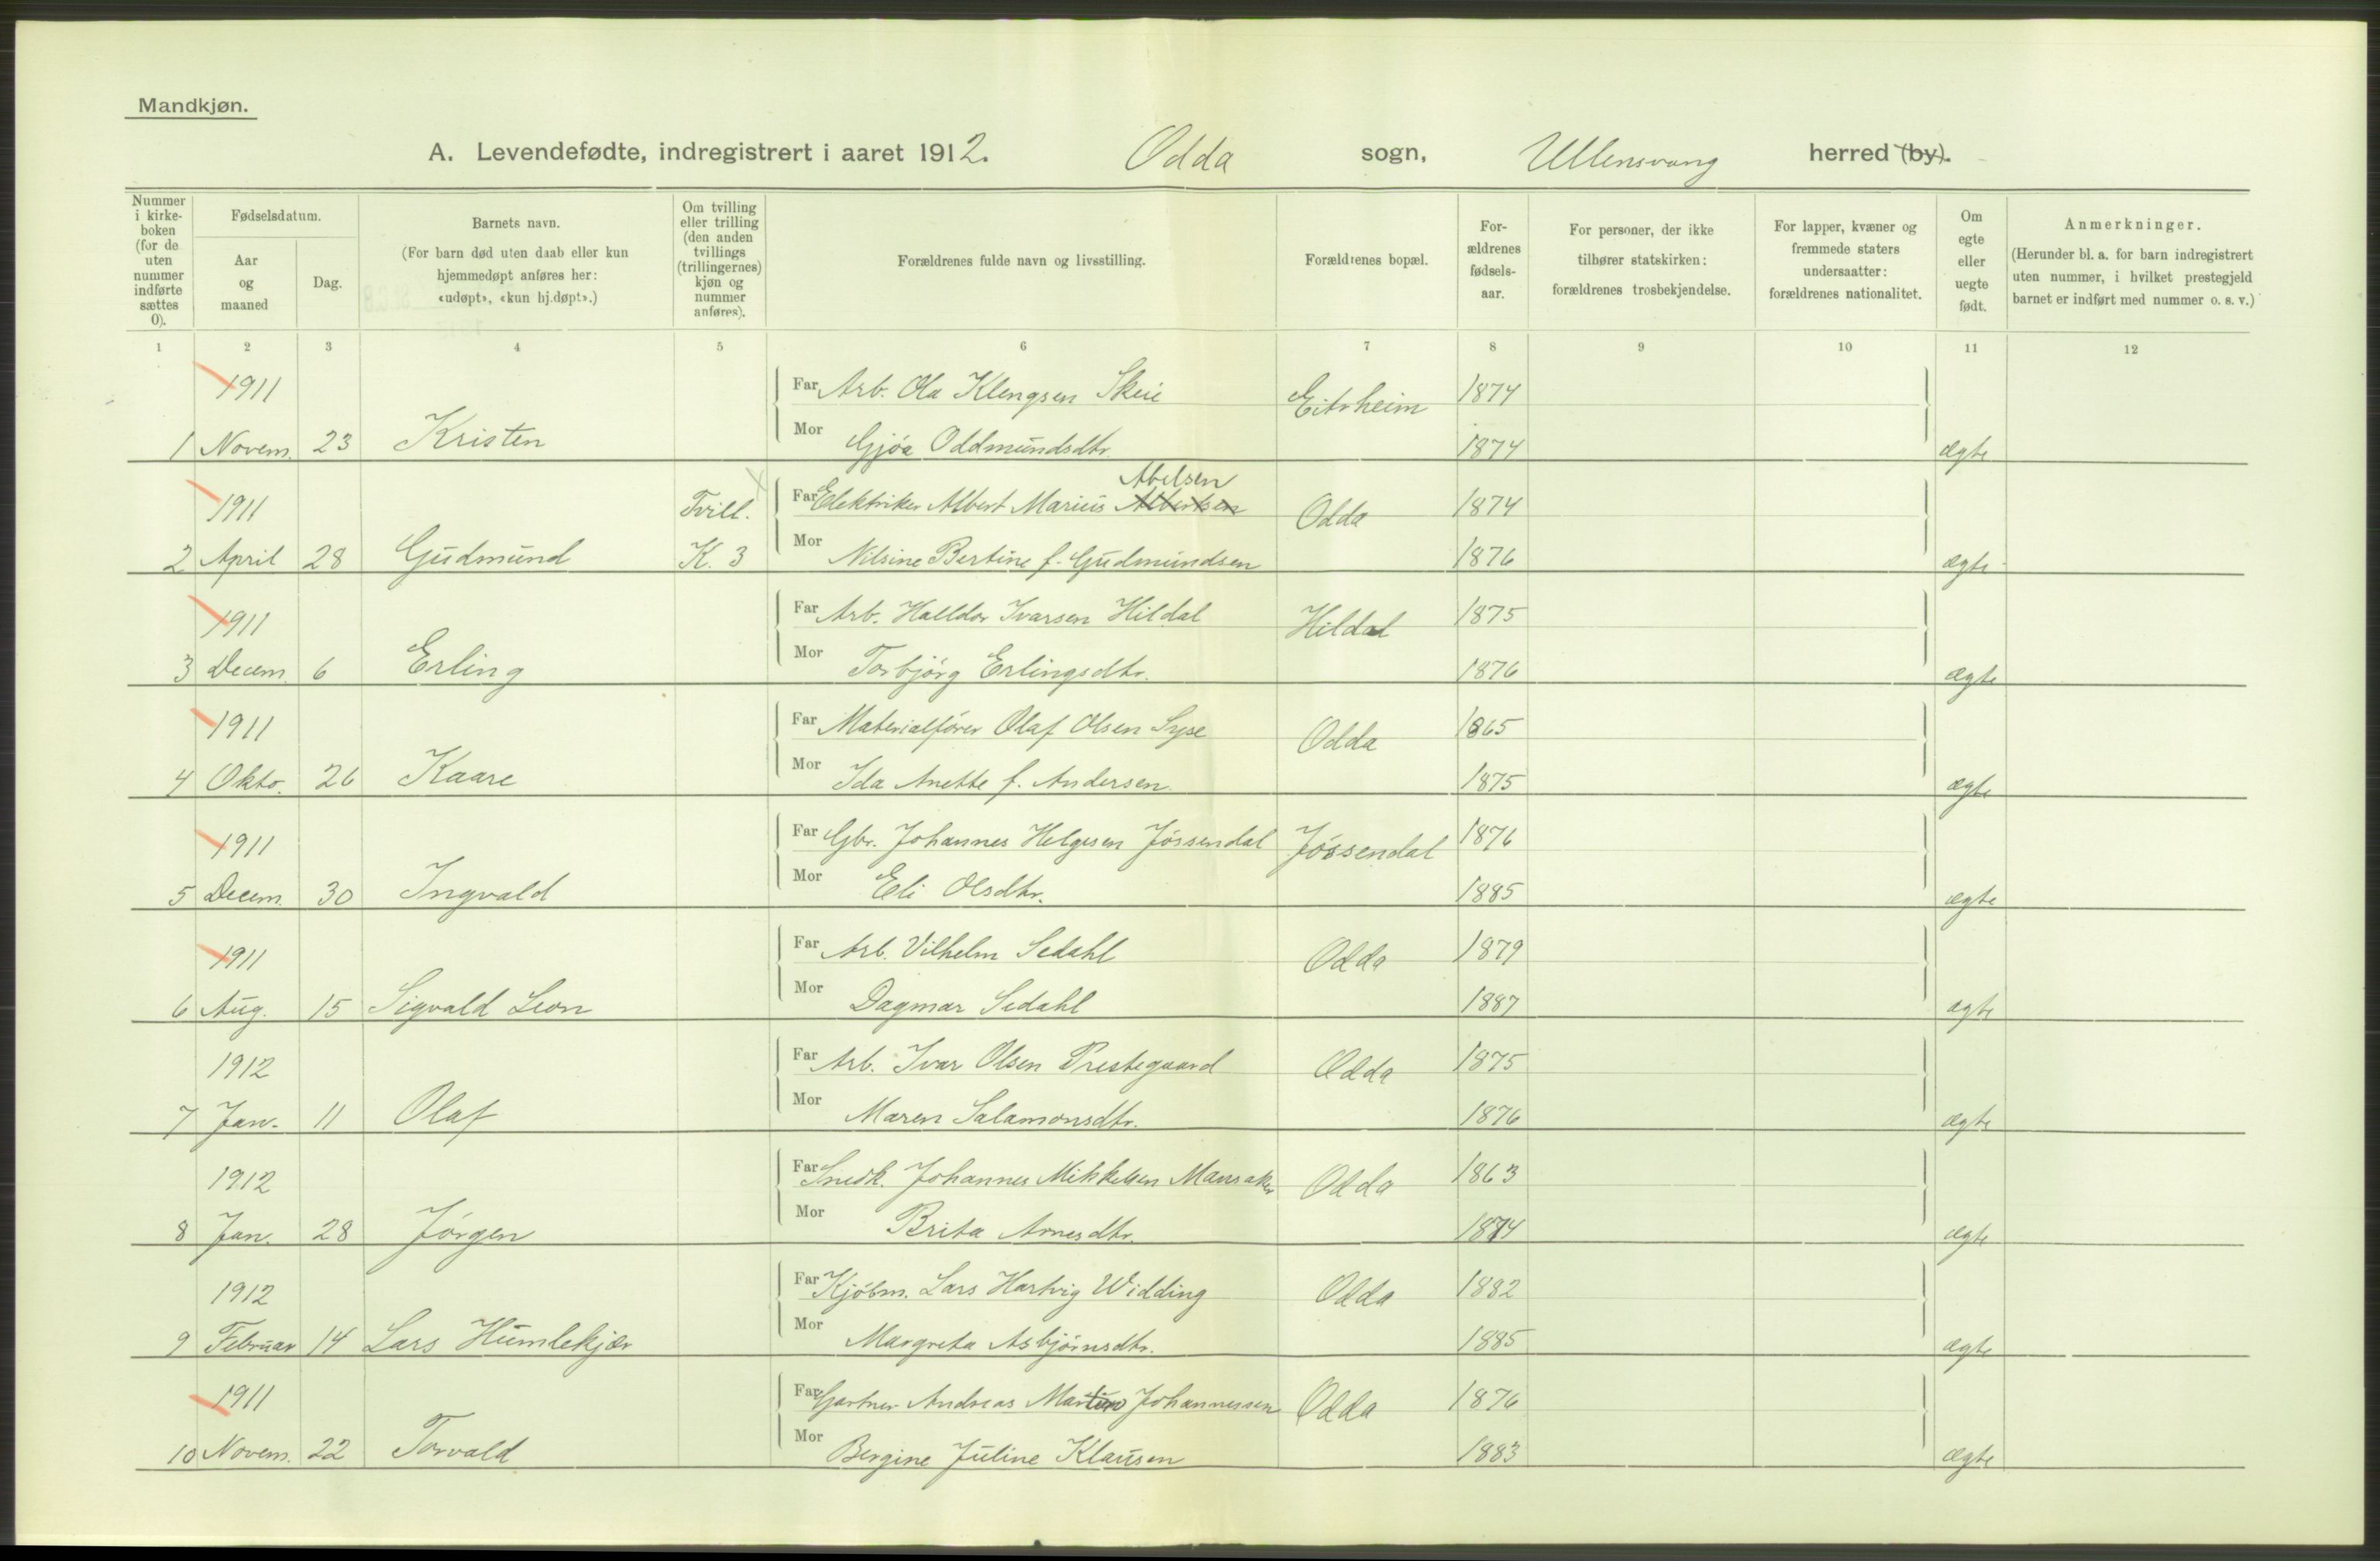 Mandkjøn.
A. Levendefødte, indregistrert i aaret 1912. Odda sogn, Ullensvang herred (by).
Nummer i kirke-boken (for de uten nummer indførte sættes 0).
Fødselsdatum.
Aar og maaned
Dag.
Barnets navn.
(For barn død uten daab eller kun hjemmedøpt anføres her: «udøpt», «kun hj.døpt».)
Om tvilling eller trilling (den anden tvillings (trillingernes) kjøn og nummer anføres).
Forældrenes fulde navn og livsstilling.
Forældrenes bopæl.
For-ældrenes fødsels-aar.
For personer, der ikke tilhører statskirken: forældrenes trosbekjendelse.
For lapper, kvæner og fremmede staters undersaatter: forældrenes nationalitet.
Om egte eller uegte født.
Anmerkninger.
(Herunder bl. a. for barn indregistrert uten nummer, i hvilket prestegjeld barnet er indført med nummer o. s. v.)
1 2 3 4 5 6 7 8 9 10 11 12
1911 Far Arb. Ola Klengsen Skeie Eitrheim 1874
1 Novem. 23 Kristen Mor Gjøa Oddmundsdtr. 1874 ægte
Abelsen
1911 Tvill. Far Elektriker Albert Marius Albertsen Odda 1874
2 April 28 Gudmund K. 3 Mor Nilsine Bertine f. Gudmundsen 1876 ægte
1911 Far Arb. Halldor Ivarsen Hildal Hildal 1875
3 Decem. 6 Erling Mor Torbjørg Erlingsdtr. 1876 ægte
1911 Far Materialfører Olaf Olsen Syse Odda 1865
4 Okto. 26 Kaare Mor Ida Anette f. Andersen 1875 ægte
1911 Far Gbr. Johannes Helgesen Jøssendal Jøssendal 1876
5 Decem. 30 Ingvald Mor Eli Olsdtr. 1885 ægte
1911 Far Arb. Vilhelm Sedahl Odda 1879
6 Aug. 15 Sigvald Leon Mor Dagmar Sedahl 1887 ægte
1912 Far Arb. Ivar Olsen Prestegaard Odda 1875
7 Jan. 11 Olaf Mor Maren Salamonsdtr. 1876 ægte
1912 Far Snedk. Johannes Mikkelsen Mansaker Odda 1863
8 Jan. 28 Jørgen Mor Brita Arnesdtr. 1874 ægte
1912 Far Kjøbm. Lars Hartvig Widding Odda 1882
9 Februar 14 Lars Humlekjær Mor Margreta Asbjørnsdtr. 1885 ægte
1911 Far Gartner Andreas Martin Johannessen Odda 1876
10 Novem. 22 Torvald Mor Bergine Juline Klausen 1883 ægte